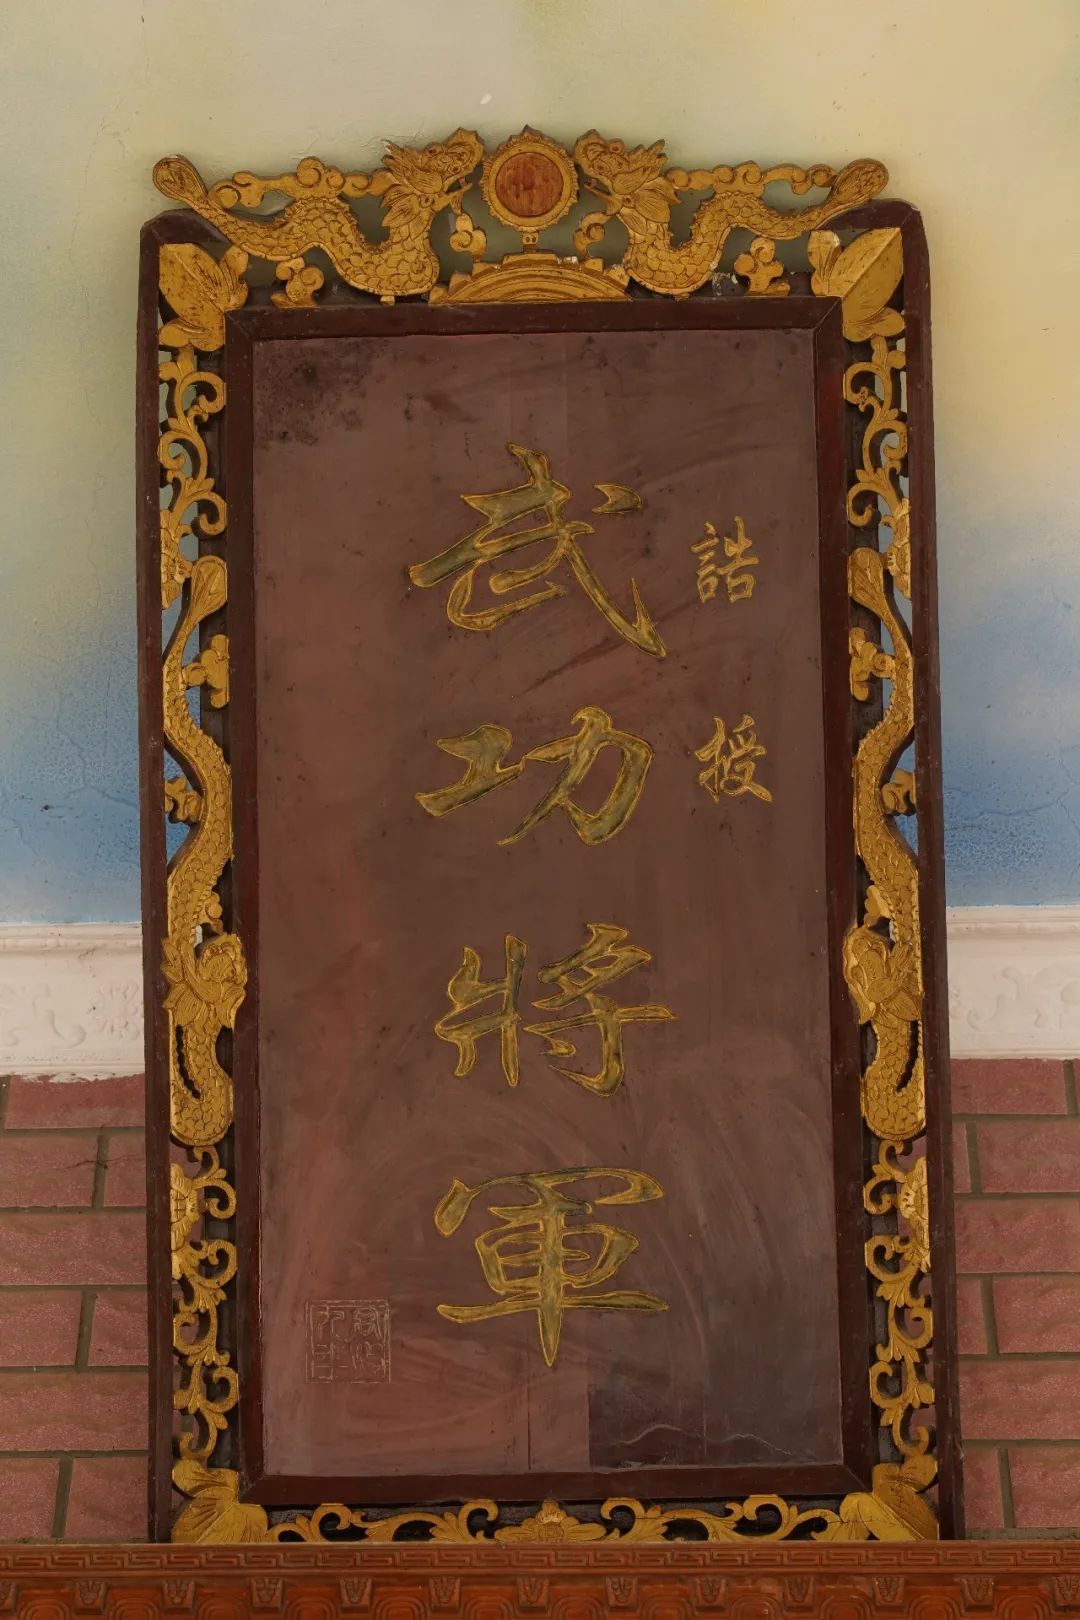 誥授
武功將軍